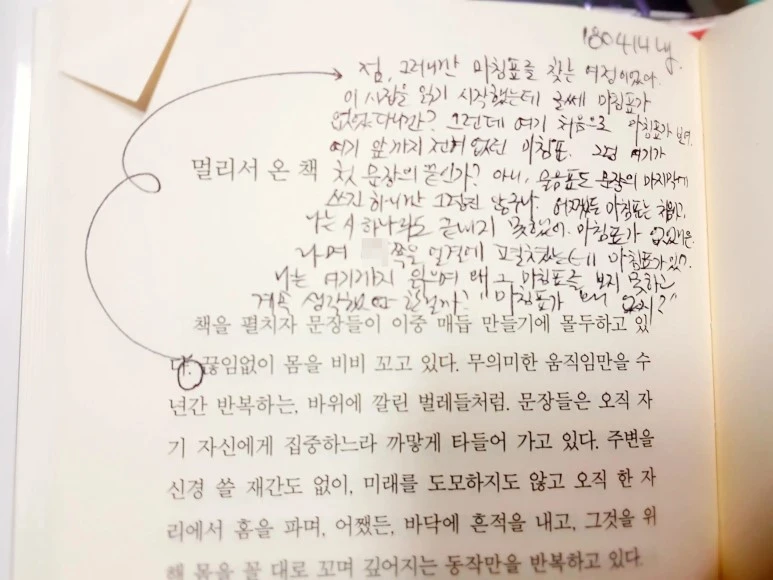 180414 wy.
점, 그러니깐 마침표를 찾는 여정이었다.
이 시집을 읽기 시작했는데 글쎄 마침표가
없었다니깐? 그런데 여기 처음으로 마침표가 보여.
여기 앞까지 전혀 없던 마침표. 그럼 여기가
멀리서 온 책
첫 문장의 끝인가? 아니, 물음표도 문장의 마지막에
쓰긴 하니깐 그정된 않구나. 어쨌든 마침표는 처음이고,
나는 시 하나라도 끝내지 못했어. 마침표가 없었네.
쪽을 얼결에 펼쳤는데 마침표가 있어.
나는 여기까지 읽으며 왜 그 마침표를 보지 못하고
계속 생각했 까? "마침표가 왜 없지?"
책을 펼치자 문장들이 이중 매듭 만들기에 몰두하고 있
다. 끊임없이 몸을 비비 꼬고 있다. 무의미한 움직임만을 수
년간 반복하는, 바위에 깔린 벌레들처럼. 문장들은 오직 자
기 자신에게 집중하느라 까맣게 타들어 가고 있다. 주변을
신경 쓸 재간도 없이, 미래를 도모하지도 않고 오직 한 자
리에서 홈을 파며, 어쨌든, 바닥에 흔적을 내고, 그것을 위
해 몸을 꼴 대로 꼬며 깊어지는 동작만을 반복하고 있다.